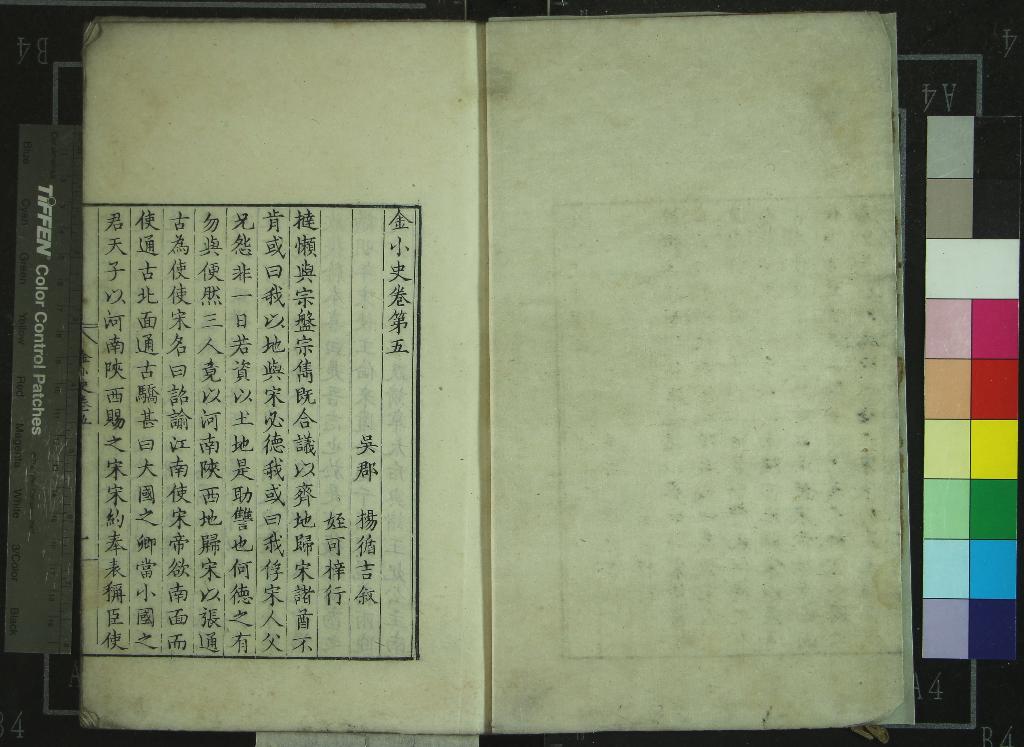 金小史卷第五
吳郡 楊循吉敘
姪可梓行
撻懶與宗盤宗雋既合議以齊地歸宋諸酋不
肯或曰我以地與宋必德我或曰我俘宋人父
兄怨非一日若資以土地是助讐也何德之有
勿與便然三人竟以河南陝西地歸宋以張通
古為使使宋名曰詔諭江南使宋帝欲南面而
使通古北面通古驕甚曰大國之卿當小國之
君天子以河南陝西賜之宋宋約奉表稱臣使
金小史卷五
一
TIFFEN Color Control Patches
Blue
Cyan
Green
Yellow
Red
Magenta
White
3/Color
Black
B4
A4
A4
B4